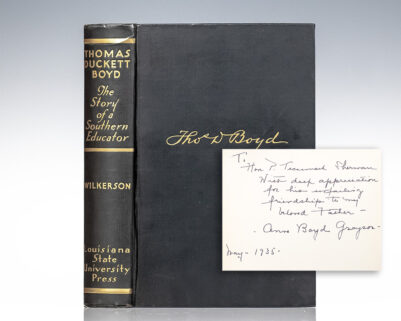 THOMAS
DUCKETT
BOYD
The
Story
of a
Southern
Educator
WILKERSON
Louisiana
State
University
Press
Thos D Boyd
To,
Hon P. Tecumseh Sherman
With deep appreciation
for his unfailing
friendship to my
beloved Father —
- Anne Boyd Grayson -
May - 1935 -